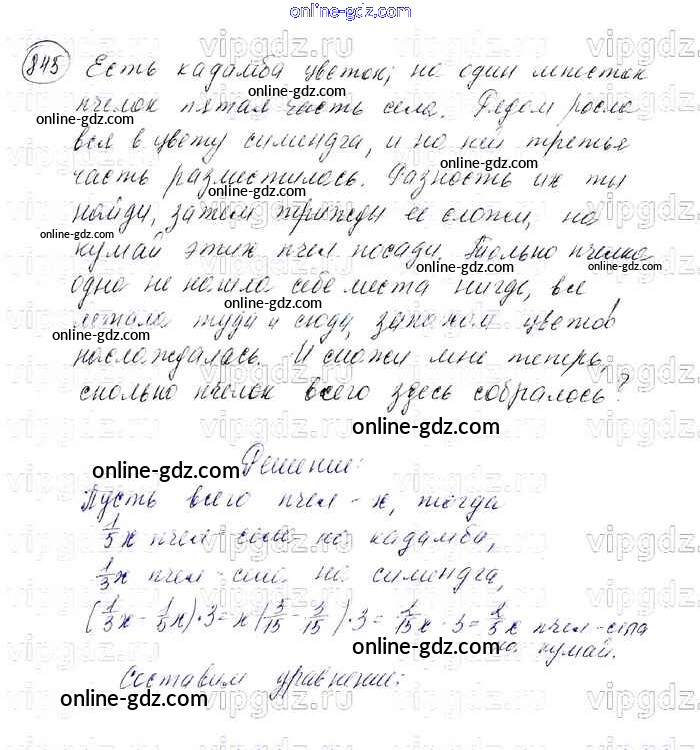 online-gdz.com
845 Есть кадамба цветок; на один лепесток
пчелок пятая часть села. Рядом росла
вся в цвету сименгда, и на ней третья
часть разместилась. Разность их ты
найди, затем трижды ее сложи, на
кутай этих пчел посади. Только пчелка
одна не нашла себе места нигде, все
летала туда и сюда, запахом цветов
наслаждалась. И скажи мне теперь,
сколько пчелок всего здесь собралось?
Решение:
Пусть всего пчел - x, тогда
1/5 x пчел - село на кадамба,
1/3 x пчел - село на сименгда,
(1/3 x - 1/5 x) · 3 = x (5/15 - 3/15) · 3 = 2/15 x · 3 = 2/5 x пчел - села
на кутай.
Составим уравнение: